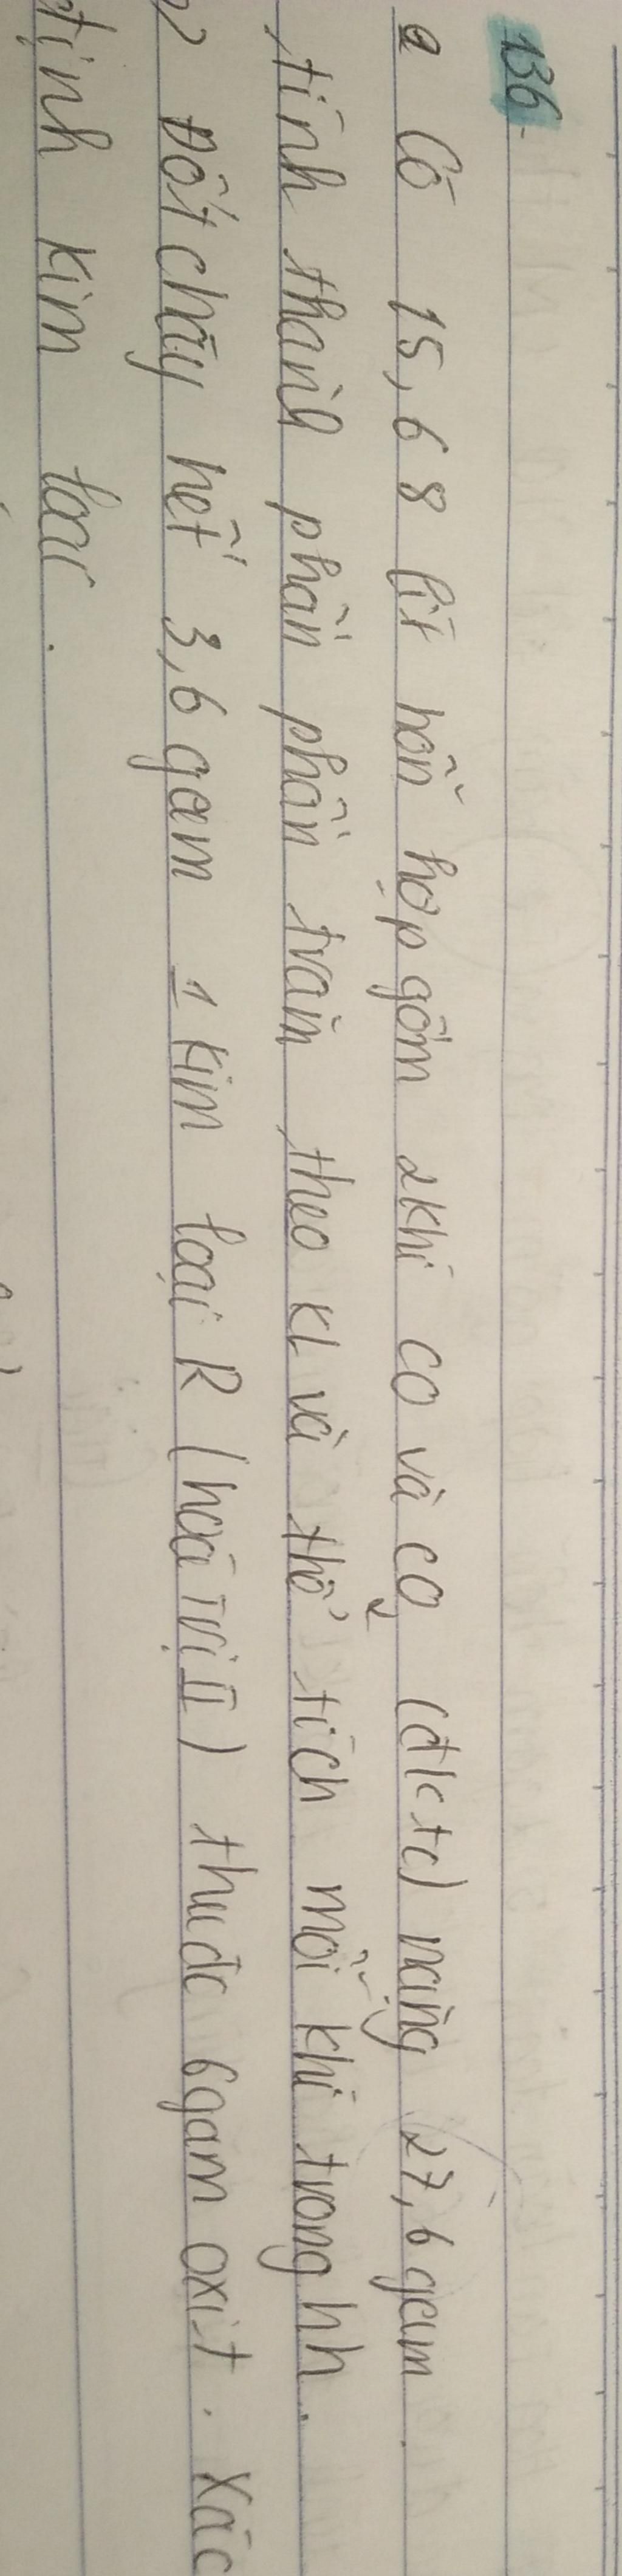 136.
a Có 15,68 lít hỗn hợp gồm 2 khí CO và CO2 (đktc) nặng 27,6 gam.
tính thành phần phần trăm theo KL và thể tích mỗi khí trong hh.
Đốt cháy hết 3,6 gam 1 kim loại R (hoá trị II) thuđc 6gam oxit. Xác
định kim loại.